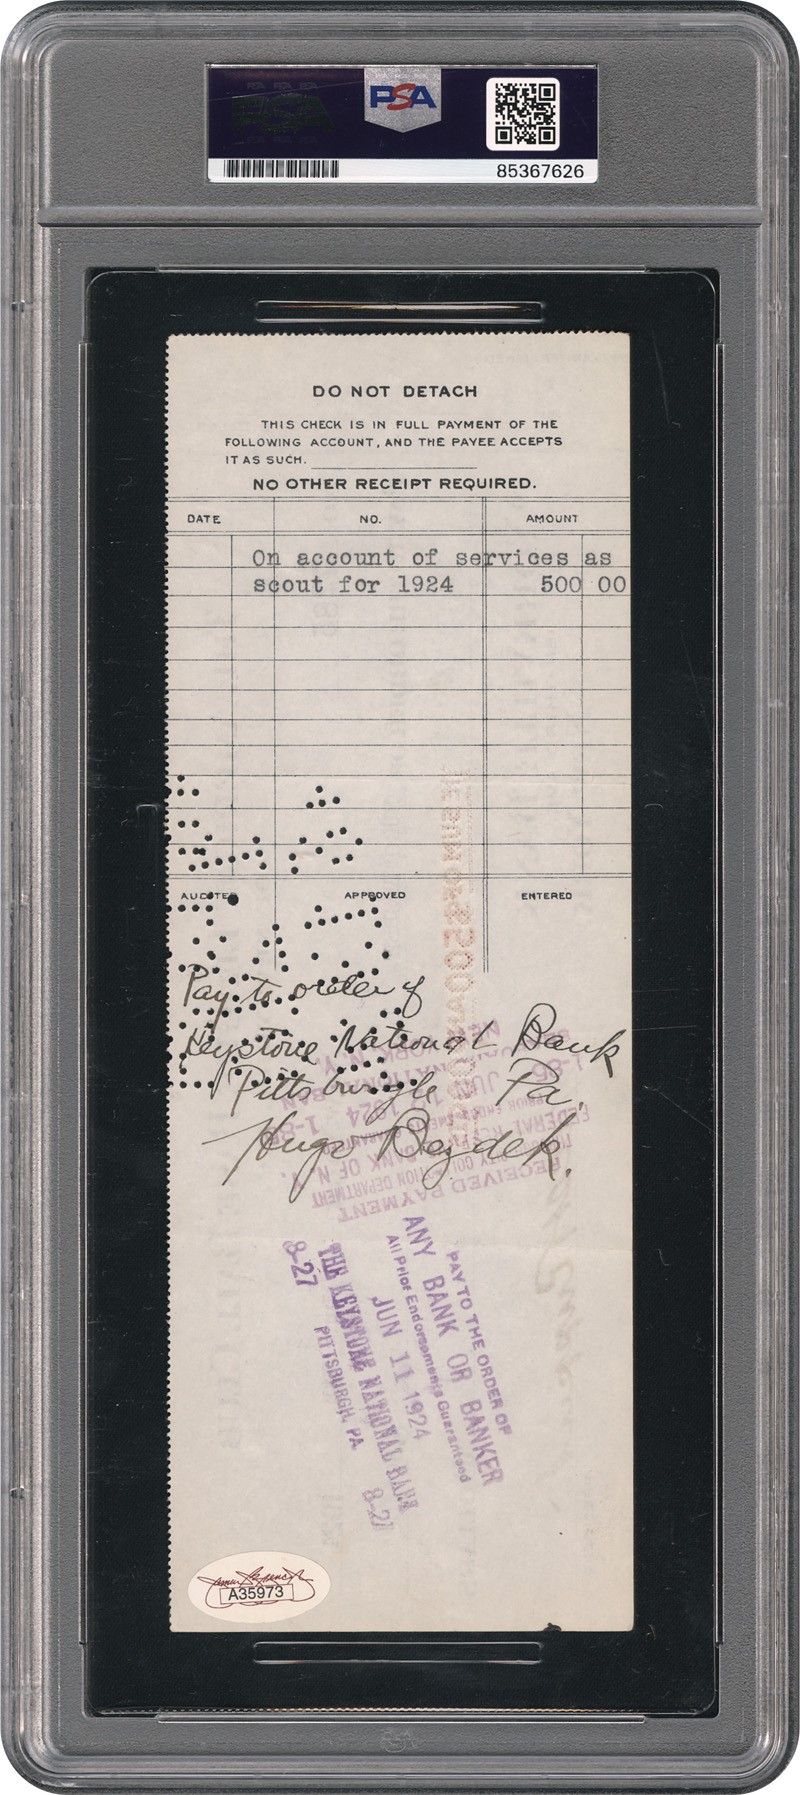 PSA
PSA
85367626
DO NOT DETACH
THIS CHECK IS IN FULL PAYMENT OF THE
FOLLOWING ACCOUNT, AND THE PAYEE ACCEPTS
IT AS SUCH.
NO OTHER RECEIPT REQUIRED.
DATE NO. AMOUNT
On account of services as
scout for 1924 500 00
AUDITED APPROVED ENTERED
Pay to order of
Keystone National Bank
Pittsburgh Pa.
Hugo Bezdek.
RECEIVED PAYMENT
PAY TO THE ORDER OF
ANY BANK OR BANKER
All Prior Endorsements Guaranteed
JUN 11 1924
THE KEYSTONE NATIONAL BANK
8-27 PITTSBURGH, PA. 8-27
A35973
PSA